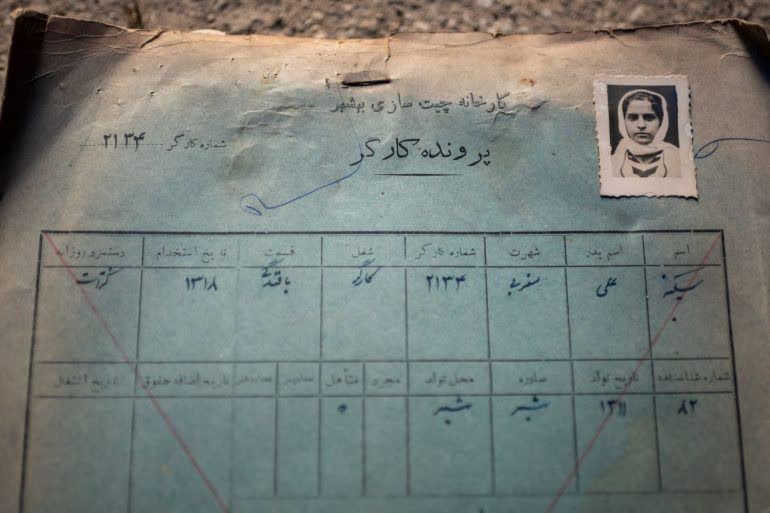 کارخانه چیت سازی بهشهر
پرونده کارگر
شماره کارگر ۲۱۳۴
اسم اسم پدر شهرت شماره کارگر شغل قسمت تاریخ استخدام دستمزد روزانه
سکینه علی ۲۱۳۴ کارگر بافندگی ۱۳۱۸
شماره شناسنامه تاریخ تولد صادره محل تولد مجرد متأهل تاریخ اضافه حقوق تاریخ انتقال
۸۲ ۱۳۱۱